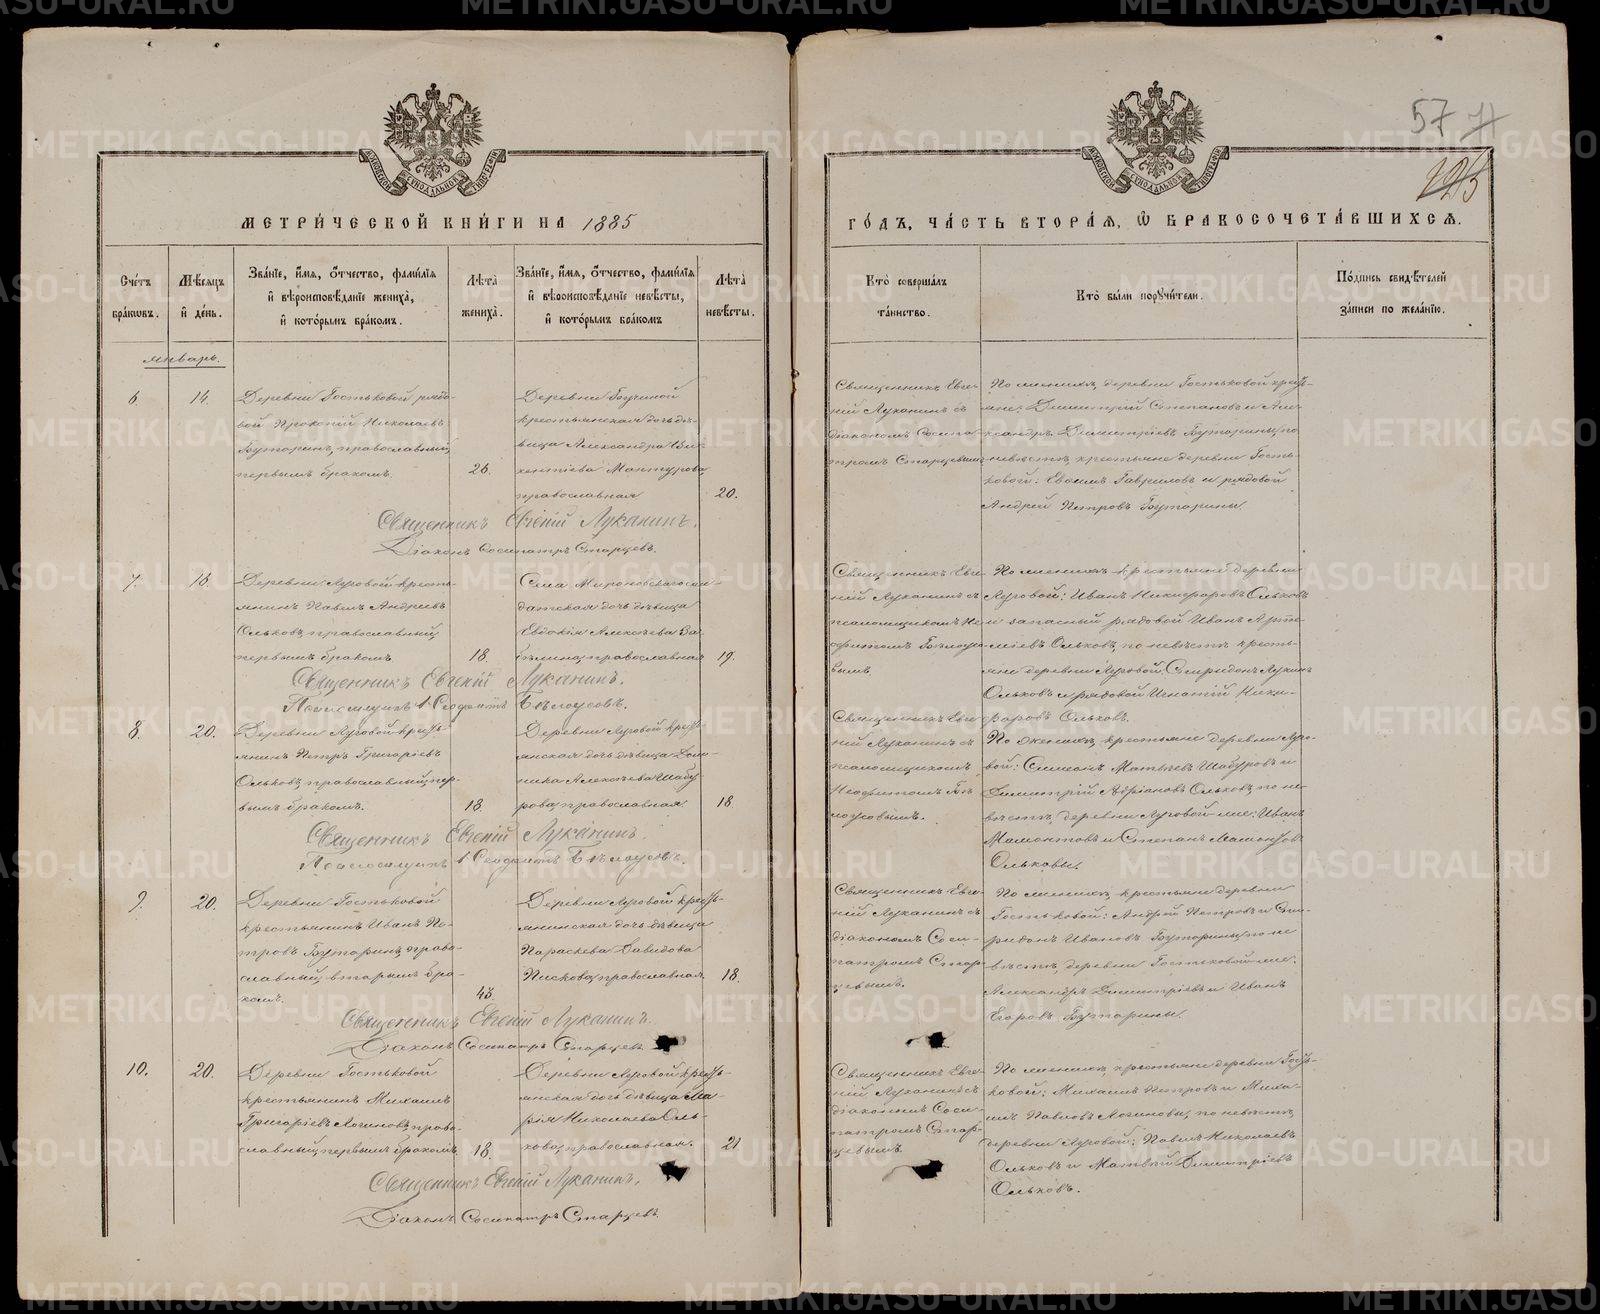 57
МЕТРИ́ЧЕСКОЙ КНИ́ГИ НА 1885
Сче́тъ бра́кѡвъ.
Мѣ́сяцъ и҆ де́нь.
Зва́нїе, и҆́мя, ѻ҆́тчество, фами́лїя и҆ вѣроисповѣ́данїе жениха̀, и҆ кото́рымъ бра́комъ.
Лѣ́та жениха̀.
Зва́нїе, и҆́мя, ѻ҆́тчество, фами́лїя и҆ вѣроисповѣ́данїе невѣ́сты, и҆ кото́рымъ бра́комъ
Лѣ́та невѣ́сты.
Январь.
6.
14.
Деревни Гостьковой рядо-
вой Прокопій Николаевъ
Бутаринъ, православный,
первымъ бракомъ.
26.
Деревни
крестьянская дочь дѣ-
вица Александра Ви-
кентіева Мантурова,
православная
20.
Священникъ Евгеній Луканинъ.
Діаконъ Сосипатръ Старцевъ.
7.
16.
Деревни Луговой кресть-
янинъ Павелъ Андреевъ
Ольковъ, православный,
первымъ бракомъ.
18.
Села Мироновскаго сол-
датская дочь дѣвица
Евдокія Алексѣева За-
бѣлина, православная
19.
Священникъ Евгеній Луканинъ.
Псаломщикъ Неофитъ Бѣлоусовъ.
8.
20.
Деревни Луговой кресть-
янинъ Петръ Григоріевъ
Ольковъ, православный, пер-
вымъ бракомъ.
18.
Деревни Луговой кресть-
янская дочь дѣвица Дом-
ника Алексѣева Шабу-
рова, православная.
18
Священникъ Евгеній Луканинъ.
Псаломщикъ Неофитъ Бѣлоусовъ.
9.
20.
Деревни Гостьковой
крестьянинъ Иванъ Пе-
тровъ Бутаринъ, право-
славный, вторымъ бра-
комъ.
43.
Деревни Луговой кресть-
янинская дочь дѣвица
Параскева Давидова
Пискова, православная,
18.
Священникъ Евгеній Луканинъ.
Діаконъ Сосипатръ Старцевъ.
10.
20.
Деревни Гостьковой
крестьянинъ Михаилъ
Григоріевъ Логиновъ, право-
славный, первымъ бракомъ,
18.
Деревни Луговой кресть-
янская дочь дѣвица Ма-
рія Николаева Оль-
кова, православная.
21
Священникъ Евгеній Луканинъ.
Діаконъ Сосипатръ Старцевъ.
ГО́ДЪ, ЧА́СТЬ ВТОРА́Я, Ѡ҆ БРАКОСОЧЕТА́ВШИХСЯ.
Кто̀ соверша́лъ та́инство.
Кто̀ бы́ли пору́чи́тели.
По́дпись свидѣ́телей за́писи по жела́нїю.
Священникъ Евге-
ній Луканинъ съ
діакономъ Сосипа-
тромъ Старцевымъ
По женихѣ, деревни Гостьковой кресть-
яне: Димитрій Степановъ и Але-
ксандръ Димитріевъ Бутарины, по
невѣстѣ, крестьяне деревни Гость-
ковой: Евѳимъ Гавриловъ и рядовой
Андрей Петровъ Бутарины.
Священникъ Евге-
ній Луканинъ съ
псаломщикомъ Не-
офитомъ Бѣлоусо-
вымъ.
По женихѣ крестьяне деревни
Луговой: Иванъ Никифоровъ Ольковъ
и запасный рядовой Иванъ Арте-
міевъ Ольковъ, по невѣстѣ кресть-
яне деревни Луговой: Спиридонъ Лукинъ
Ольковъ и рядовой Игнатій Ники-
форовъ Ольковъ.
Священникъ Евге-
ній Луканинъ съ
псаломщикомъ
Неофитомъ Бѣ-
лоусовымъ.
По женихѣ, крестьяне деревни Луго-
вой: Симеонъ Матвѣевъ Шабуровъ и
Димитрій Адріановъ Ольковъ, по не-
вѣстѣ, деревни Луговой-же: Иванъ
Мамонтовъ и Степанъ Мамонтовъ
Ольковы.
Священникъ Евге-
ній Луканинъ съ
діакономъ Соси-
патромъ Стар-
цевымъ.
По женихѣ, крестьяне деревни
Гостьковой: Андрей Петровъ и Спи-
ридонъ Ивановъ Бутарины, по не-
вѣстѣ, деревни Гостьковой-же:
Александръ Димитріевъ и Иванъ
Егоровъ Бутарины.
Священникъ Евге-
ній Луканинъ съ
діакономъ Соси-
патромъ Стар-
цевымъ.
По женихѣ, крестьяне деревни Гость-
ковой: Михаилъ Петровъ и Миха-
илъ Павловъ Логиновы, по невѣстѣ,
деревни Луговой: Павелъ Николаевъ
Ольковъ и Матвѣй Димитріевъ
Ольковъ.
METRIKI.GASO-URAL.RU